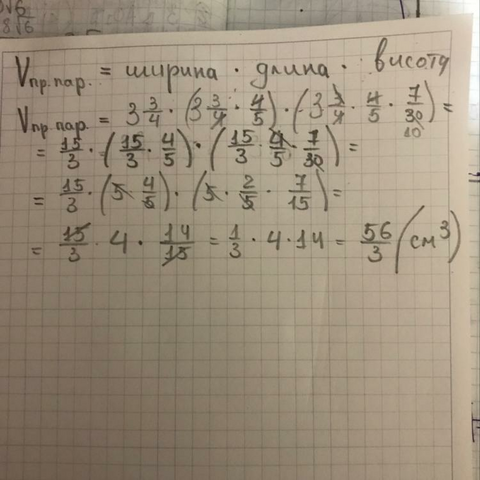 √6
8√6
Vпр.пар. = ширина · длина · высоту
Vпр.пар. = 3 3/4 · (3 3/4 · 4/5) · (3 3/4 · 4/5 · 7/30) =
10
= 15/3 · (15/3 · 4/5) · (15/3 · 4/5 · 7/30) =
= 15/3 · (5 · 4/5) · (5 · 2/5 · 7/15) =
= 15/3 · 4 · 14/15 = 1/3 · 4 · 14 = 56/3 (см³)